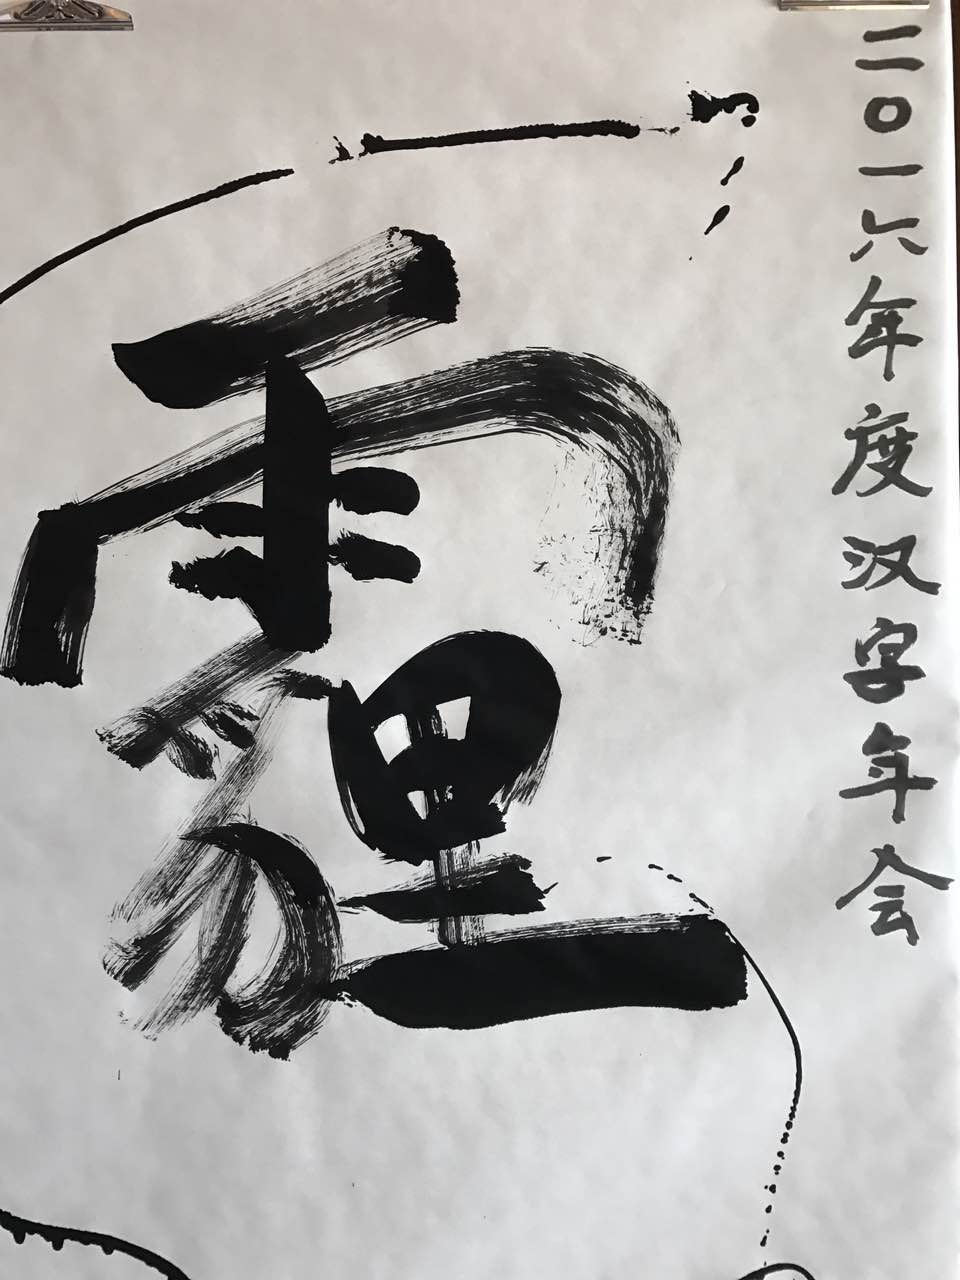 二〇一六年度汉字年会
霾